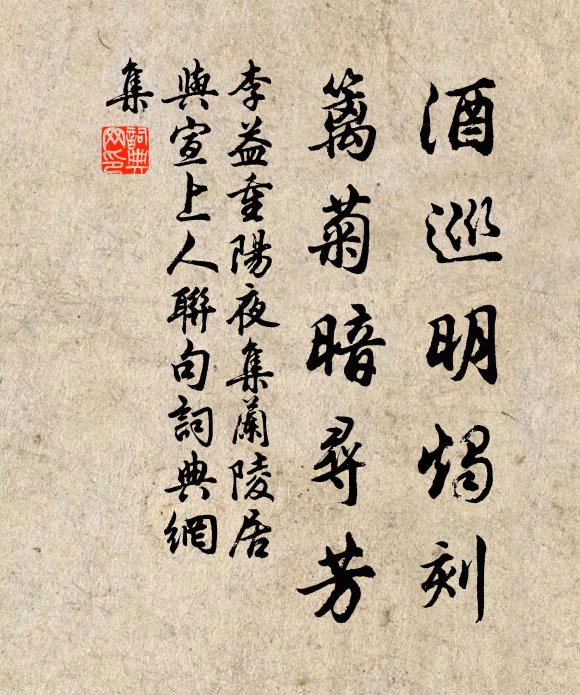 酒巡明燭刻
籬菊暗尋芳
李益重陽夜集蘭陵居
與宣上人聯句詞典網
集
詞典
网印